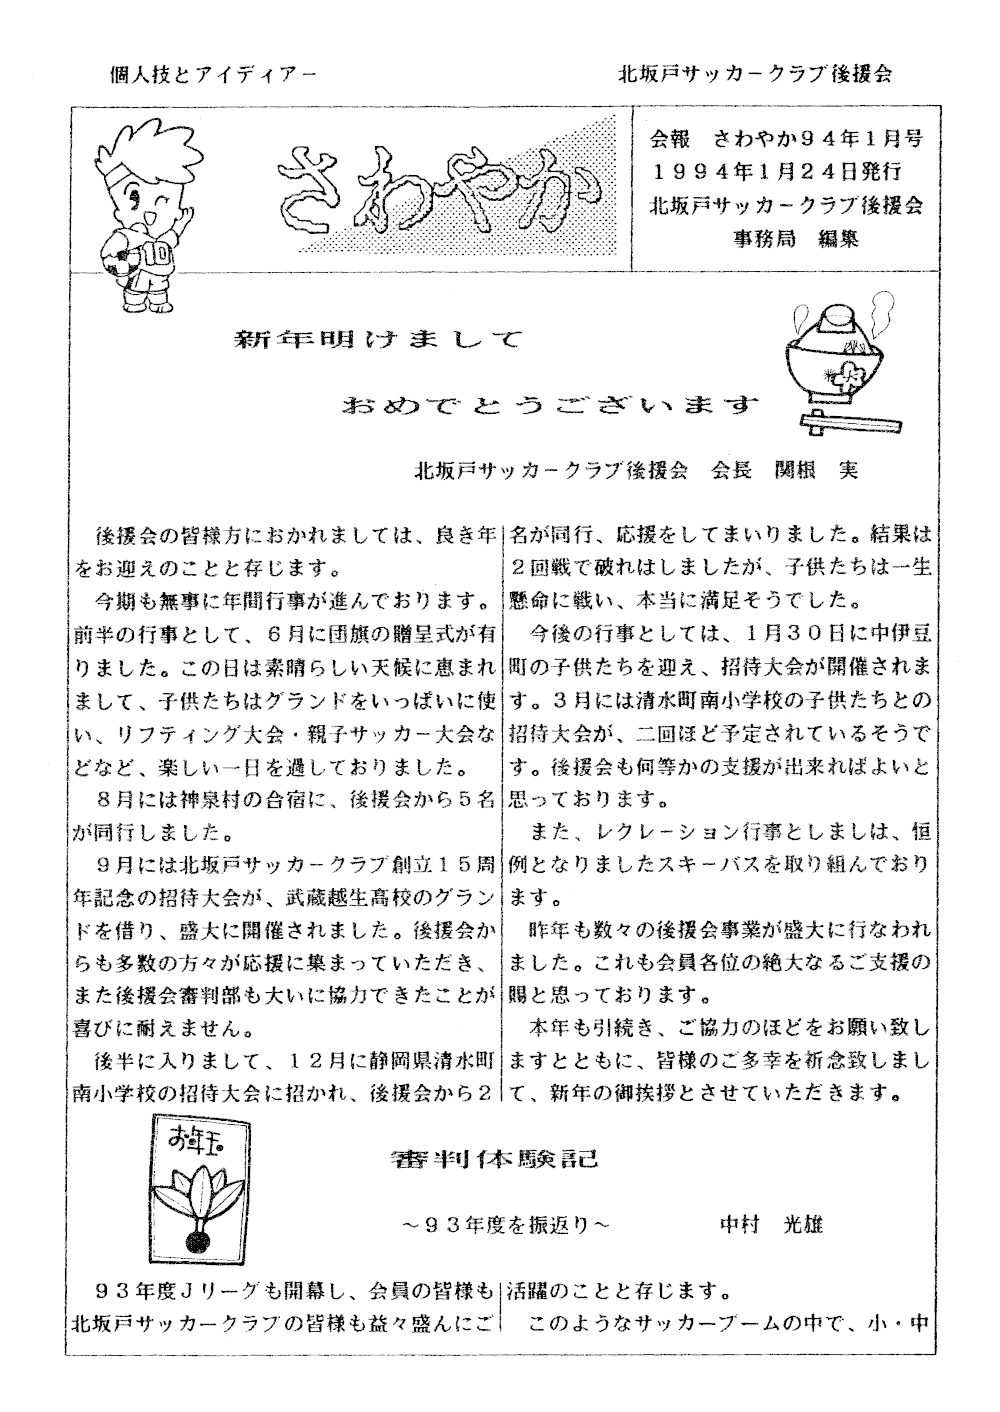 個人技とアイディアー
北坂戸サッカークラブ後援会
さわやか
会報　さわやか９４年１月号
１９９４年１月２４日発行
北坂戸サッカークラブ後援会
事務局　編集
10
新年明けまして
おめでとうございます
北坂戸サッカークラブ後援会　会長　関根　実
後援会の皆様方におかれましては、良き年
をお迎えのことと存じます。
今期も無事に年間行事が進んでおります。
前半の行事として、６月に団旗の贈呈式が有
りました。この日は素晴らしい天候に恵まれ
まして、子供たちはグランドをいっぱいに使
い、リフティング大会・親子サッカー大会な
どなど、楽しい一日を過しておりました。
８月には神泉村の合宿に、後援会から５名
が同行しました。
９月には北坂戸サッカークラブ創立１５周
年記念の招待大会が、武蔵越生高校のグラン
ドを借り、盛大に開催されました。後援会か
らも多数の方々が応援に集まっていただき、
また後援会審判部も大いに協力できたことが
喜びに耐えません。
後半に入りまして、１２月に静岡県清水町
南小学校の招待大会に招かれ、後援会から２
名が同行、応援をしてまいりました。結果は
２回戦で破れはしましたが、子供たちは一生
懸命に戦い、本当に満足そうでした。
今後の行事としては、１月３０日に中伊豆
町の子供たちを迎え、招待大会が開催されま
す。３月には清水町南小学校の子供たちとの
招待大会が、二回ほど予定されているそうで
す。後援会も何等かの支援が出来ればよいと
思っております。
また、レクレーション行事としましは、恒
例となりましたスキーバスを取り組んでおり
ます。
昨年も数々の後援会事業が盛大に行なわれ
ました。これも会員各位の絶大なるご支援の
賜と思っております。
本年も引続き、ご協力のほどをお願い致し
ますとともに、皆様のご多幸を祈念致しまし
て、新年の御挨拶とさせていただきます。
お年玉
審判体験記
～９３年度を振返り～　中村　光雄
９３年度Ｊリーグも開幕し、会員の皆様も
北坂戸サッカークラブの皆様も益々盛んにご
活躍のことと存じます。
このようなサッカーブームの中で、小・中